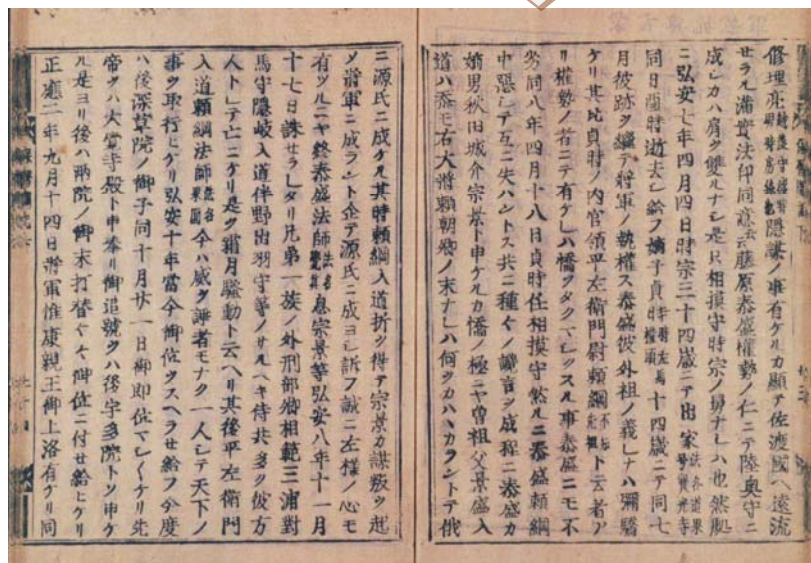 修理亮隠謀ノ事有ケルカ顕テ佐渡國ヘ遠流
サラル滿實法印同意云々藤原泰盛權勢ノ仁ニテ陸奥守ニ
成シカハ肩ヲ雙ルナシ是只相摸守時宗ノ舅ナレハ也然処
ニ弘安七年四月四日時宗三十四歳ニテ出家法名道果号寶光寺
同日酉時逝去シ給フ嫡子貞時于時左馬權頭十四歳ニテ同七
月彼跡ヲ継テ將軍ノ執權ス泰盛彼外祖ノ義ナレハ彌驕
ケリ其比貞時ノ内官領平左衛門尉頼綱不知先祖ト云者ア
リ權勢ノ者ニテ有ケレハ憍ヲタクマシクスル事泰盛ニモ不
劣同八年四月十八日貞時任相摸守然ルニ泰盛頼綱
中悪シテ互ニ失ハントス共ニ種々ノ讒言ヲ成程ニ泰盛カ
嫡男秋田城介宗景ト申ケルカ憍ノ極ニヤ曽祖父景盛入
道ハ忝モ右大將頼朝卿ノ末ナレハ何ヲカハハカラントテ俄
ニ源氏ニ成ケル其時頼綱入道折ヲ得テ宗景カ謀叛ヲ起
シ將軍ニ成ラント企テ源氏ニ成ヨシ訴フ誠ニ左様ノ心モ
有ツルニヤ終泰盛法師法名覚真息宗景等弘安八年十一月
十七日誅セラレタリ兄弟一族ノ外刑部卿相範三浦對
馬守隠岐入道伴野出羽守等ノサルヘキ侍共多ク彼方
人トシテ亡ニケリ是ヲ霜月騒動ト云ヘリ其後平左衛門
入道頼綱法師法名果圓今ハ威ヲ諍者モナク一人シテ天下ノ
事ヲ取行ヒケリ弘安十年當今御位ヲスヘラセ給フ今度
ハ後深草院ノ御子同十月廿一日御即位マシヘケリ先
帝ヲハ大覚寺殿ト申奉リ御追號ヲハ後宇多院トソ申ケ
ル是ヨリ後ハ兩院ノ御末打替ヘヘ御位ニ付セ給ヒケリ
正應二年九月十四日將軍惟康親王御上洛有ケリ同